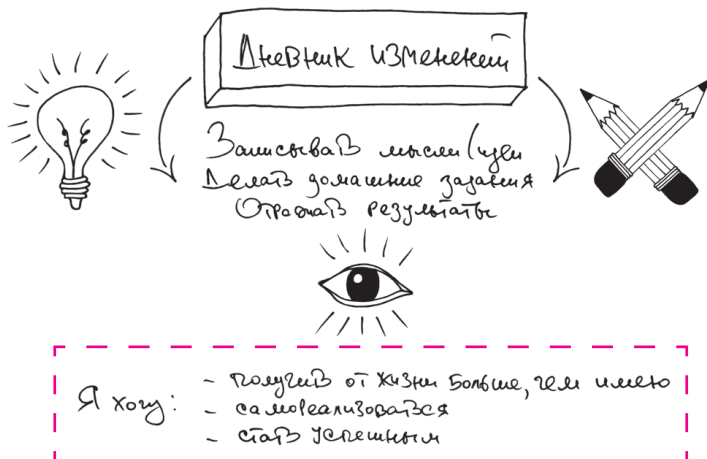 Дневник изменений
Записывать мысли/идеи
Делать домашние задания
Отражать результаты
Я хочу: - получить от жизни больше, чем имею
- самореализоваться
- стать успешным